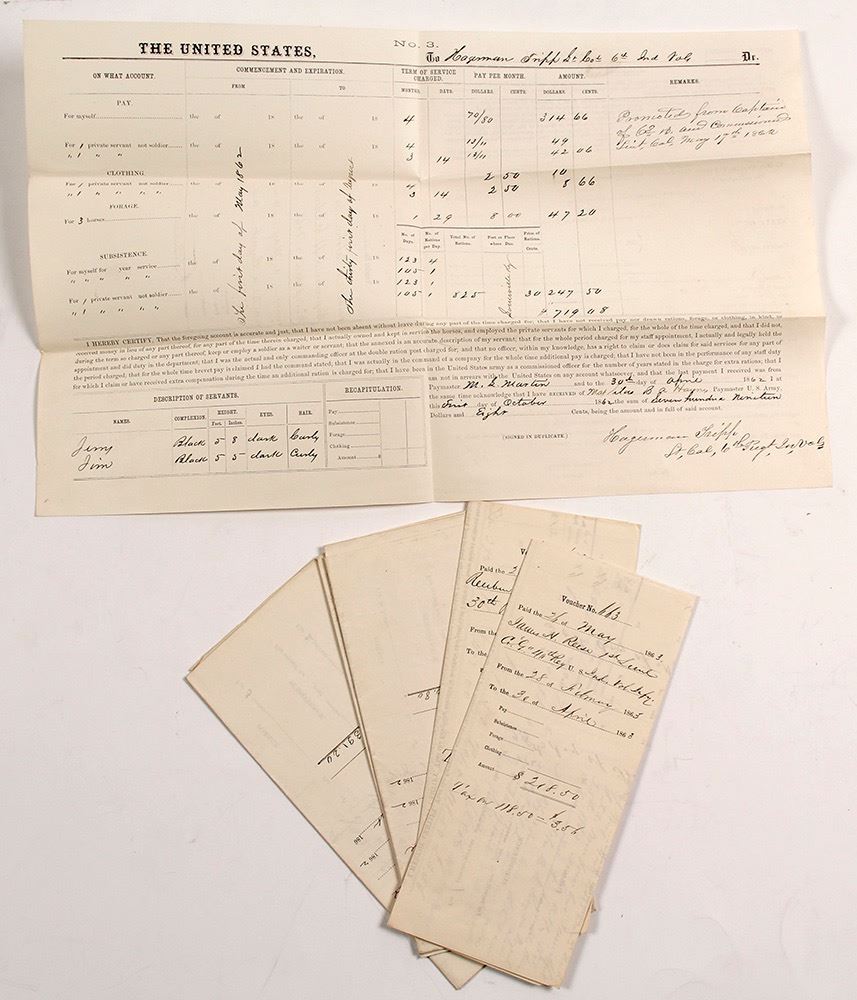 No. 3.
THE UNITED STATES,
To Hagerman Tripp Lt Col. 6th Ind Vols Dr.
ON WHAT ACCOUNT. COMMENCEMENT AND EXPIRATION. TERM OF SERVICE CHARGED. PAY PER MONTH. AMOUNT. REMARKS.
FROM TO MONTHS. DAYS. DOLLARS. CENTS. DOLLARS. CENTS.
PAY.
For myself the of 18 the of 18 4 70/80 314 66
Promoted from Captain
of Co. B. and Commissioned
Lieut Col, May 17th 1862
For 1 private servant not soldier the of 18 the of 18 4 49
" 1 " " 3 14 42 06
CLOTHING.
For 1 private servant not soldier the of 18 the of 18 4 2 50 10
" 1 " " " " 3 14 2 50 8 66
FORAGE.
For 3 horses the of 18 the of 18 1 29 8 00 47 20
The first day of May 1862
The thirty first day of August
No. of Days. No. of Rations per Day. Total No. of Rations. Post or Place where Due. Price of Rations. Cents.
SUBSISTENCE.
For myself for year service 123 4
" " " " 105 1
For 1 private servant not soldier 123 1
" 1 " " " " 105 1 825 30 247 50
$ 719 08
I HEREBY CERTIFY, That the foregoing account is accurate and just; that I have not been absent without leave during any part of the time charged for; that I have not
received money in lieu of any part thereof, for any part of the time therein charged; that I actually owned and kept in service the horses, and employed the private servants for which I charged, for the whole of the time charged, and that I did not,
during the term so charged or any part thereof, keep or employ a soldier as a waiter or servant; that the annexed is an accurate description of my servant; that for the whole period charged for my staff appointment, I actually and legally held the
appointment and did duty in the department; that I was the actual and only commanding officer at the double ration post charged for; and that no officer, within my knowledge, has a right to claim or does claim for said services for any part of
the period charged; that for the whole time brevet pay is claimed I had the command stated; that I was actually in the command of a company for the whole time additional pay is charged; that I have not been in the performance of any staff duty
for which I claim or have received extra compensation during the time an additional ration is charged for; that I have been in the United States army as a commissioned officer for the number of years stated in the charge for extra rations; that I
am not in arrears with the United States on any account whatsoever, and that the last payment I received was from
Paymaster M. L. Martin and to the 30th day of April 1862 I at
the same time acknowledge that I have RECEIVED of Major B. A. Hays, Paymaster U. S. Army,
this First day of October 1862 the sum of Seven hundred Nineteen
Dollars and Eight Cents, being the amount and in full of said account.
(SIGNED IN DUPLICATE.)
Hagerman Tripp
Lt. Col, 6th Regt Ind Vols
DESCRIPTION OF SERVANTS.
NAMES. COMPLEXION. HEIGHT. EYES. HAIR.
Feet. Inches.
Jerry Black 5 8 dark Curly
Jim Black 5 5 dark Curly
RECAPITULATION.
Pay
Subsistence
Forage
Clothing
Amount $
Paid the
Reuben
30th
From the
To the
391.20
186
1862
Voucher No. 663
Paid the 26 of May 1863
James H. Reese 1st Lieut
Co. G 44th Reg U. S. Inds Vol Infy
From the 28 of February 1863
To the 30 of April 1863
Pay
Subsistence
Forage
Clothing
Amount $ 218.50
Tax on 118.50 = $3.56